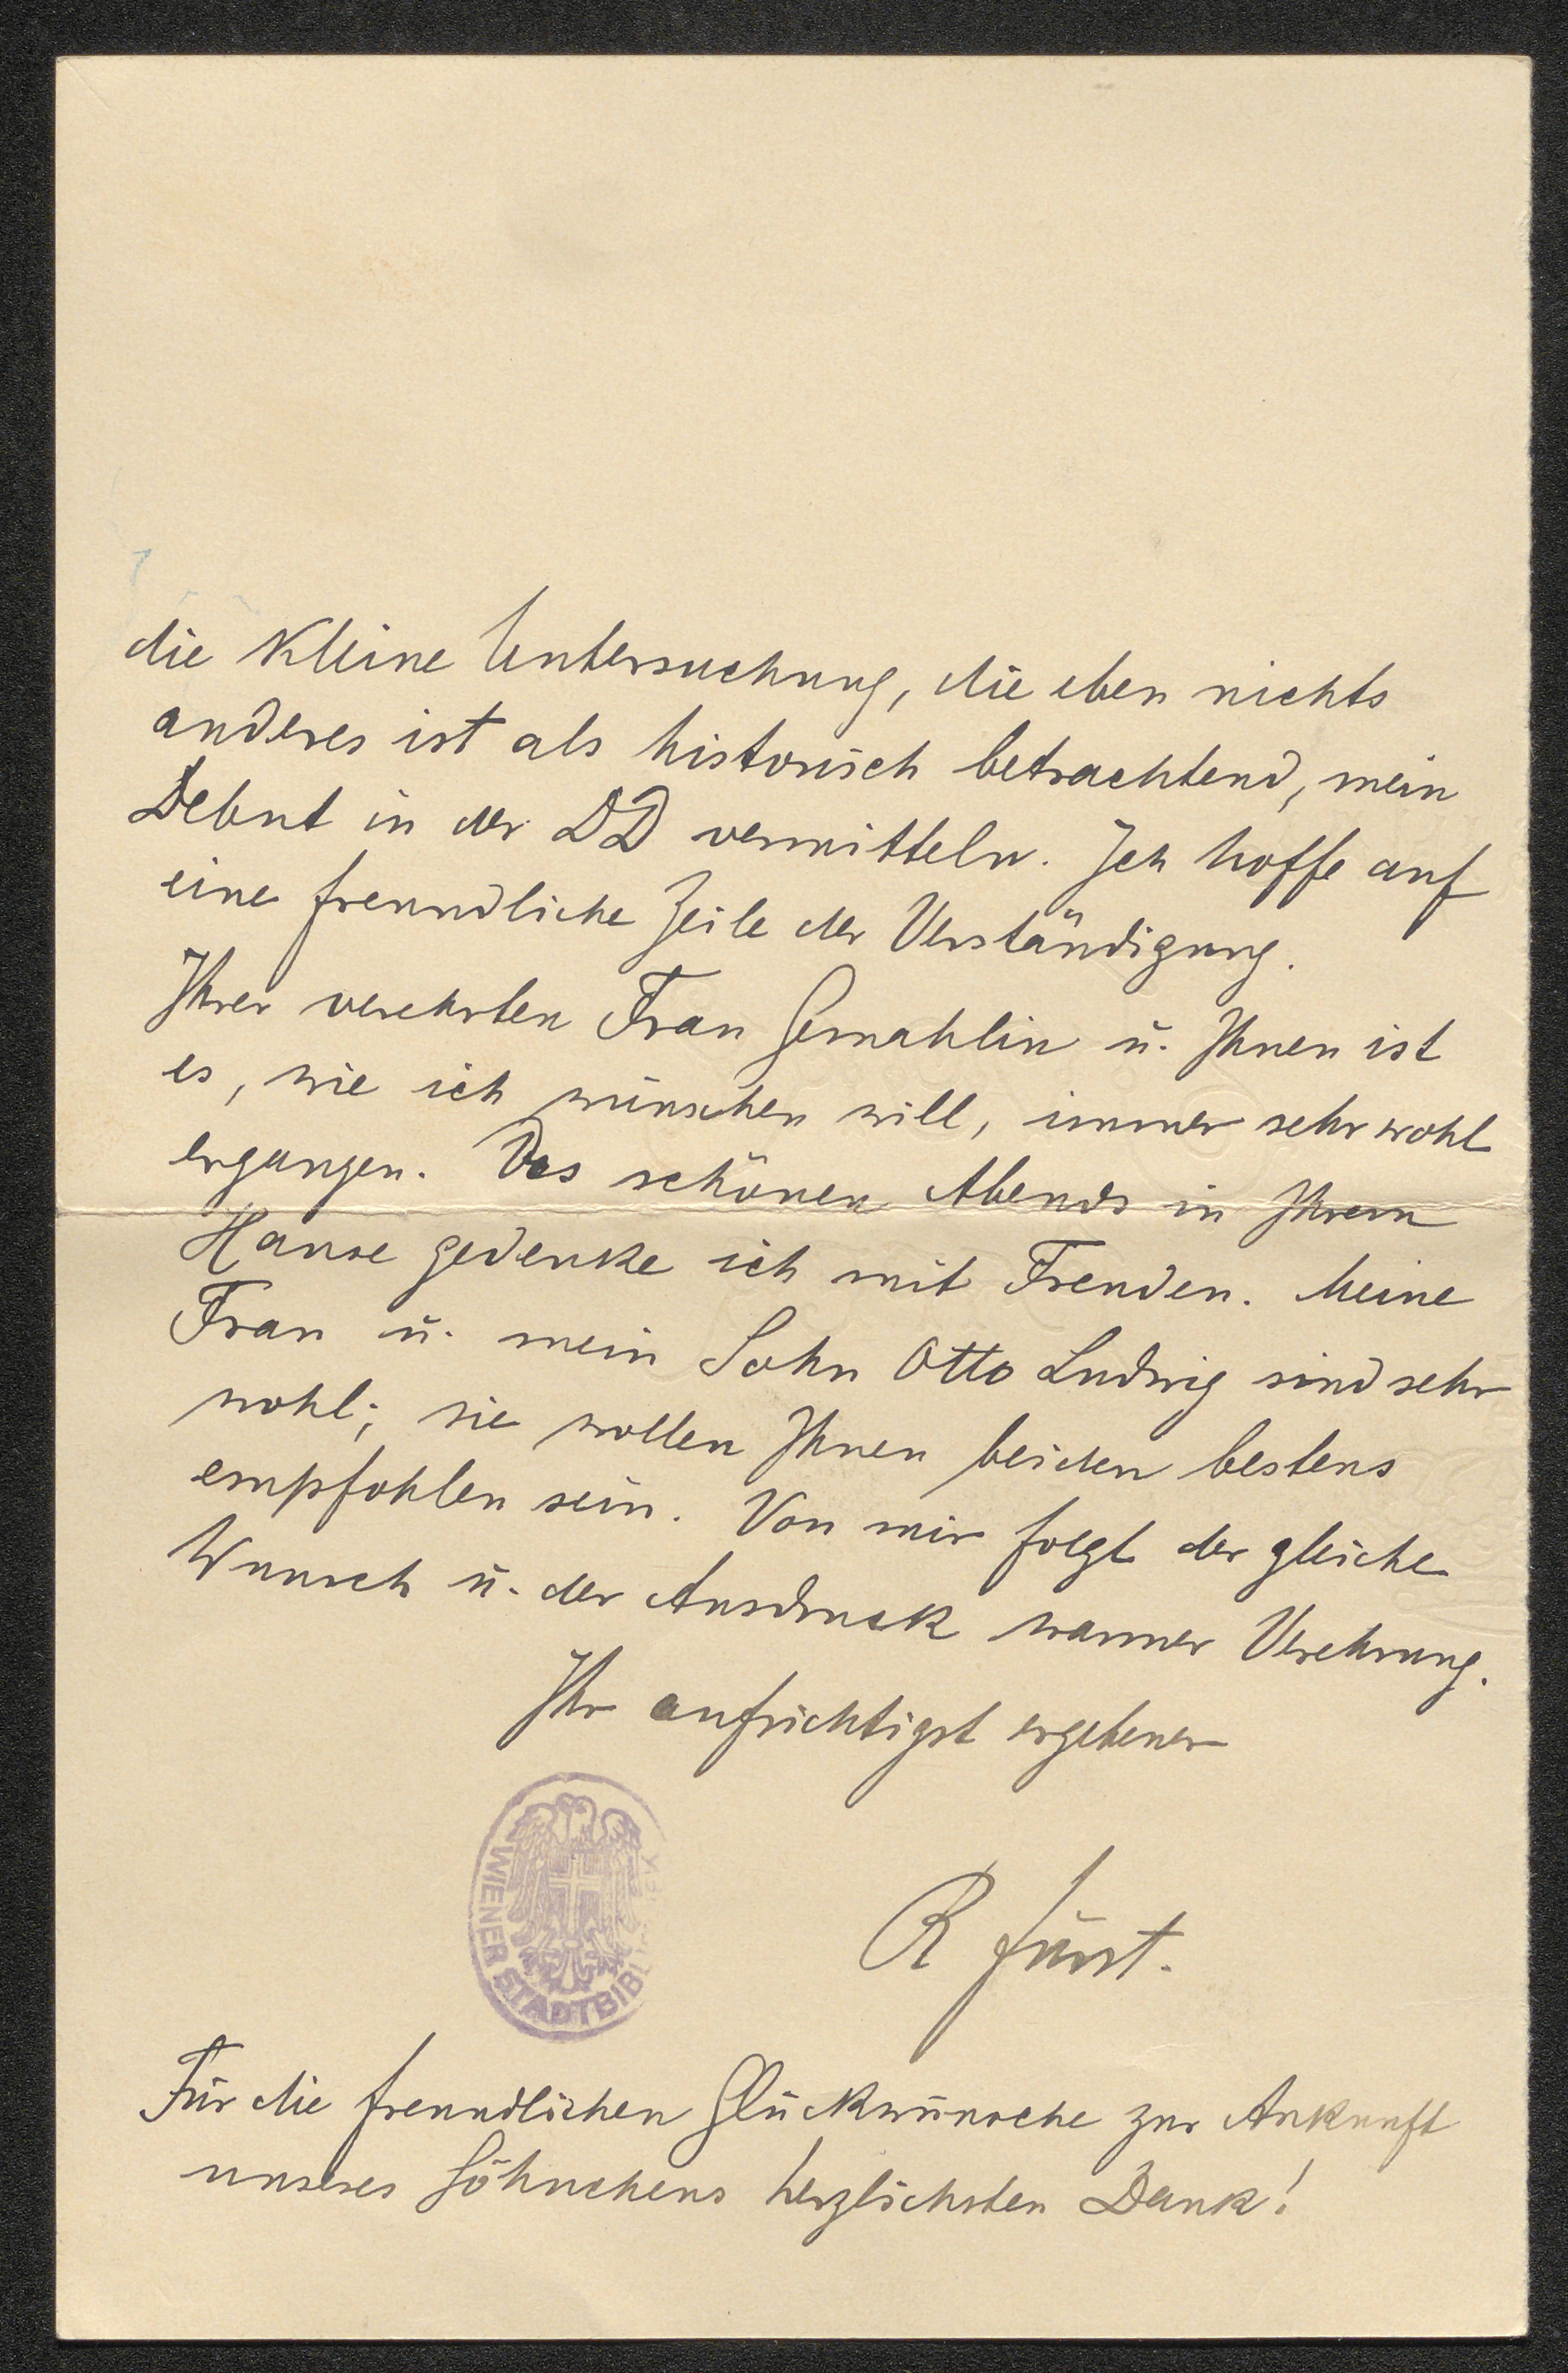 die kleine Untersuchung, die eben nichts
anderes ist als historisch betrachtend, mein
Debut in der DD vermitteln. Ich hoffe auf
eine freundliche Zeile der Verständigung.
Ihrer verehrten Frau Gemahlin u. Ihnen ist
es, wie ich wünschen will, immer sehr wohl
ergangen. Des schönen Abends in Ihrem
Hause gedenke ich mit Freuden. Meine
Frau u. mein Sohn Otto Ludwig sind sehr
wohl; sie wollen Ihnen beiden bestens
empfohlen sein. Von mir folgt der gleiche
Wunsch u. der Ausdruck warmer Verehrung.
Ihr aufrichtigst ergebener
R Fürst.
WIENER STADTBIBL
Für die freundlichen Glückwünsche zur Ankunft
unseres Söhnchens herzlichsten Dank!